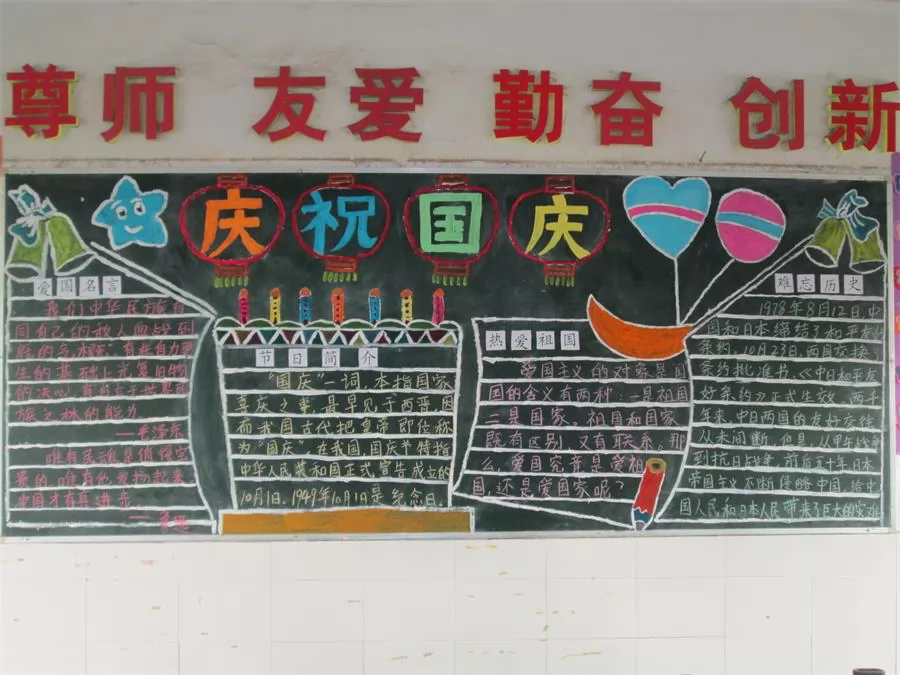 尊师 友爱 勤奋 创新
庆祝国庆
爱国名言
我们中华民族有
同自己的敌人血战到
底的气概，有在自力更
生的基础上光复旧物
的决心，有自立于世界民
族之林的能力
——毛泽东
唯有民魂是值得宝
贵的，唯有他发扬起来，
中国才有真进步
——鲁迅
节日简介
“国庆”一词，本指国家
喜庆之事，最早见于西晋，因
而我国古代把皇帝即位称
为“国庆”。在我国，国庆节特指
中华人民共和国正式宣告成立的
10月1日，1949年10月1日是纪念日。
热爱祖国
爱国主义的对象是国，
国的含义有两种：一是祖国
二是国家。祖国和国家
既有区别，又有联系，那
么，爱国究竟是爱祖
国，还是爱国家呢？
难忘历史
1978年8月12日，中
国和日本缔结了和平友好
条约，10月23日，两国交换了
条约批准书，《中日和平友
好条约》正式生效。两千
年来，中日两国的友好交往
从未间断，但是，从甲午战争
到抗日战争，前后五十年日本
帝国主义不断侵略中国，给中
国人民和日本人民带来了巨大的灾难